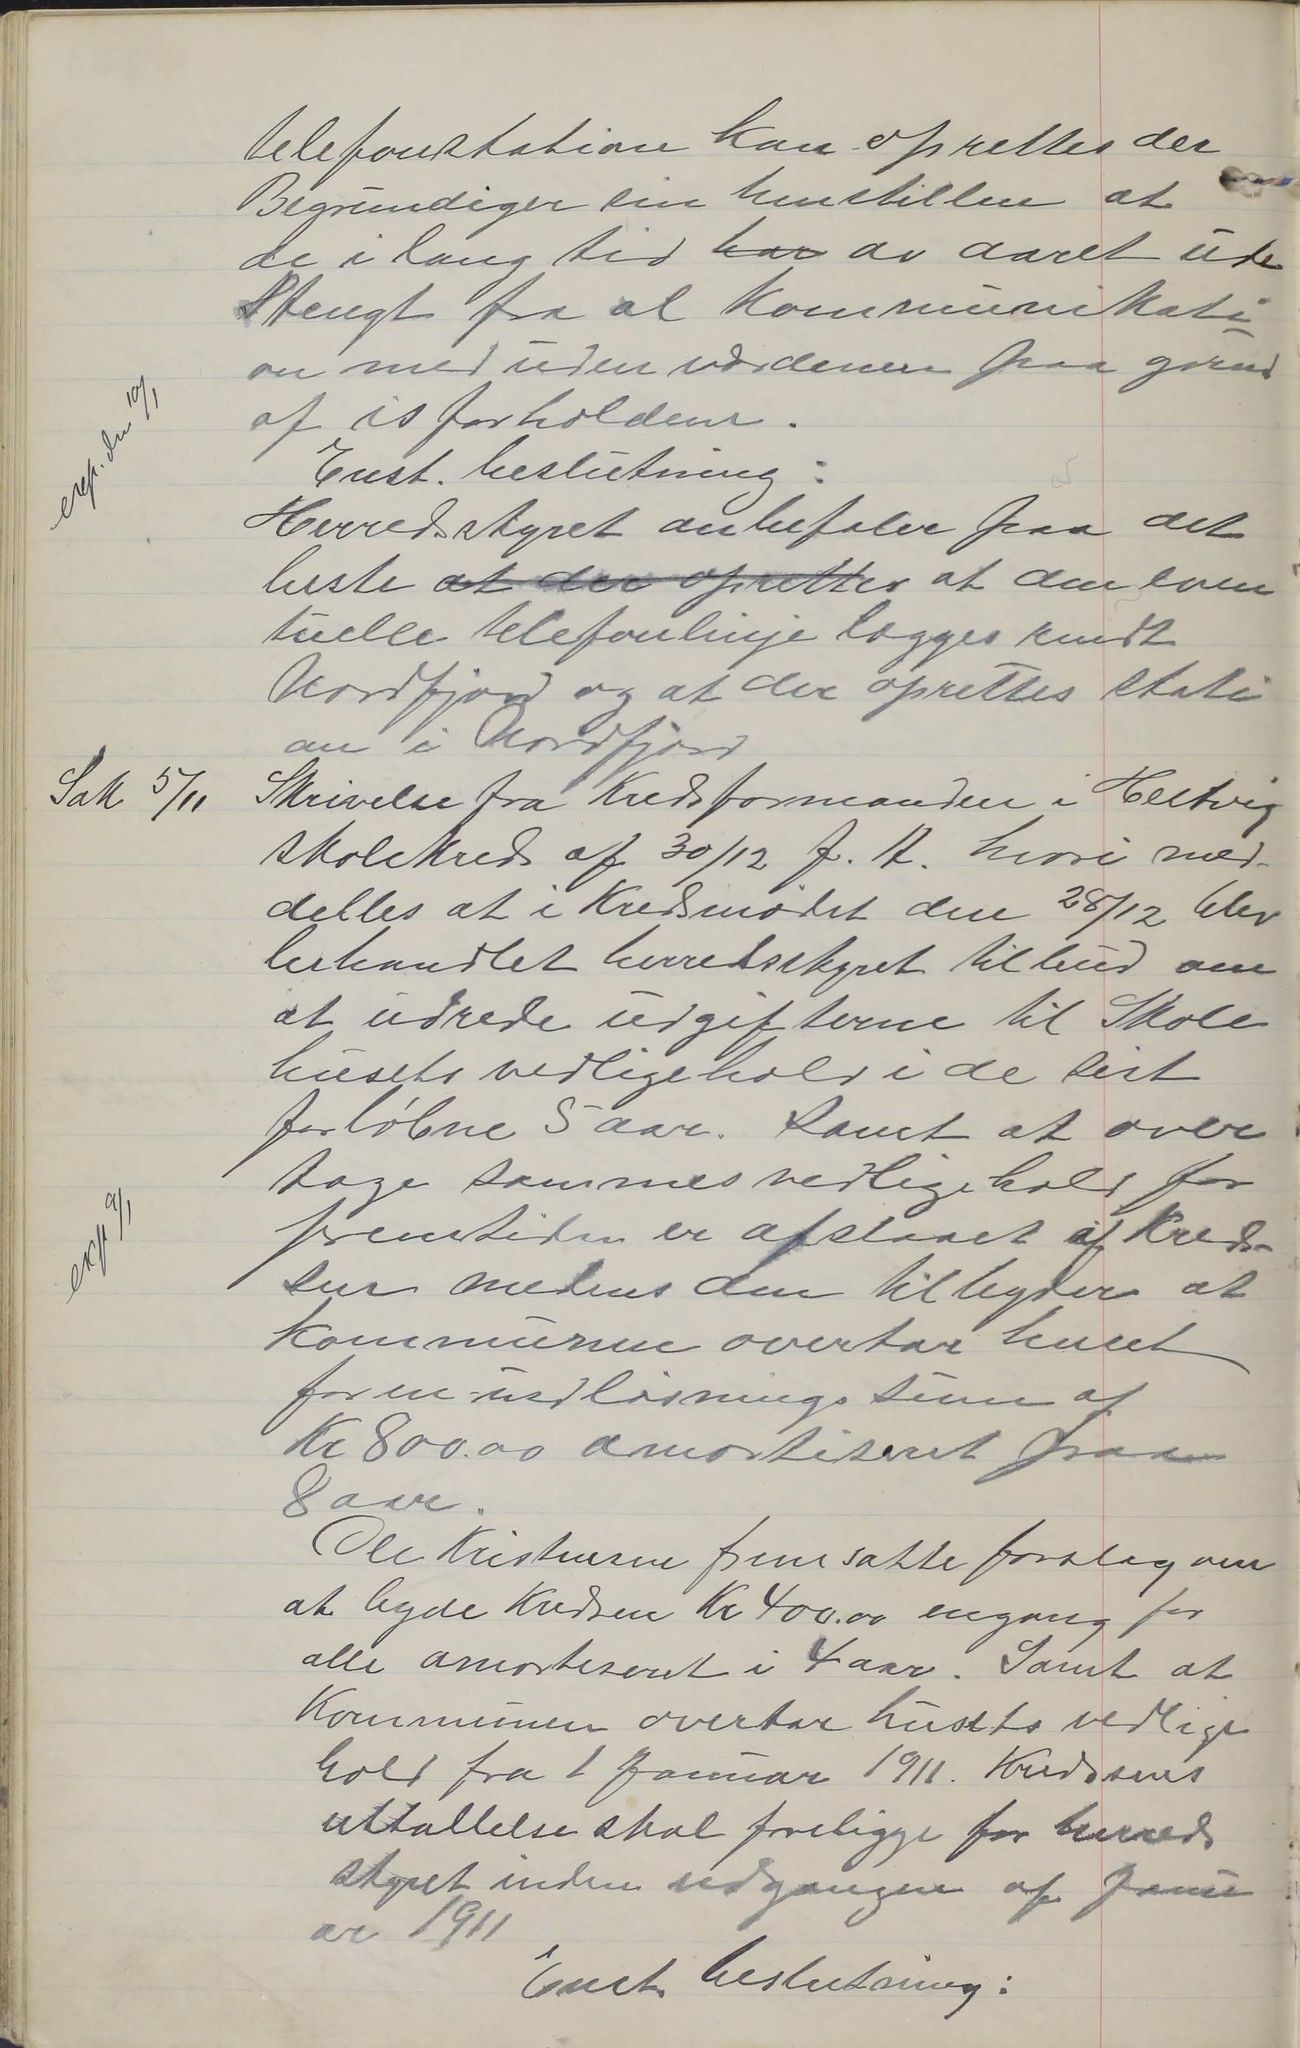 telefonstation kan oprettes der
Begrundiger sin henstillen at
de i lang tid har av aaret ude
Stengt fra al Kommunikati-
on med uden verdenen paa grund
af isforholdene.
exp. den 10/1
Enst. beslutning:
Herredsstyret anbefaler paa det
beste at der oprettes at den even
tuelle telefonlinje lægges rundt
Nordfjord og at der oprettes stati
on i Nordfjord
Sak 5/11 Skrivelse fra Kredsformanden i Hestvig
skolekreds af 30/12 f. A. hvori med-
delles at i Kredsmødet den 28/12 blev
behandlet herredsstyret tilbud om
at udrede udgifterne til Skole
husets vedligehold i de sist
forløbne 5 aar. Samt at over
tage sammes vedligehold for
exp 9/1
fremtiden er afslaaet af Kred-
sen medens den tilbyder at
Kommunen overtar huset
for en udløsnings sum af
Kr 800.00 amortiseret paa
8 aar.
Ole Kristensen fremsatte forslag om
at byde Kredsen Kr 400.00 engang for
alle amortiseret i 4 aar. Samt at
Kommunen overtar husets vedlige
hold fra 1 Januar 1911. Kredsens
uttallelse skal foreligge for herreds
styret inden udgangen af Janu
ar 1911
Enst. beslutning: